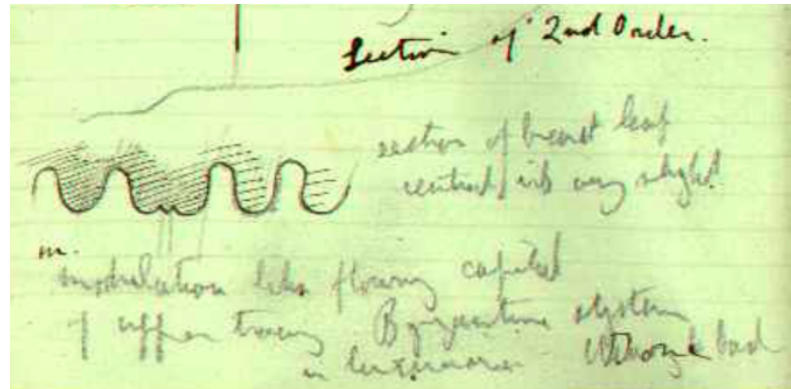 Section of 2nd Order.
section of breast leaf
central rib very slight
m.
modulation like flowing capital
of upper tracery Byzantine system
in